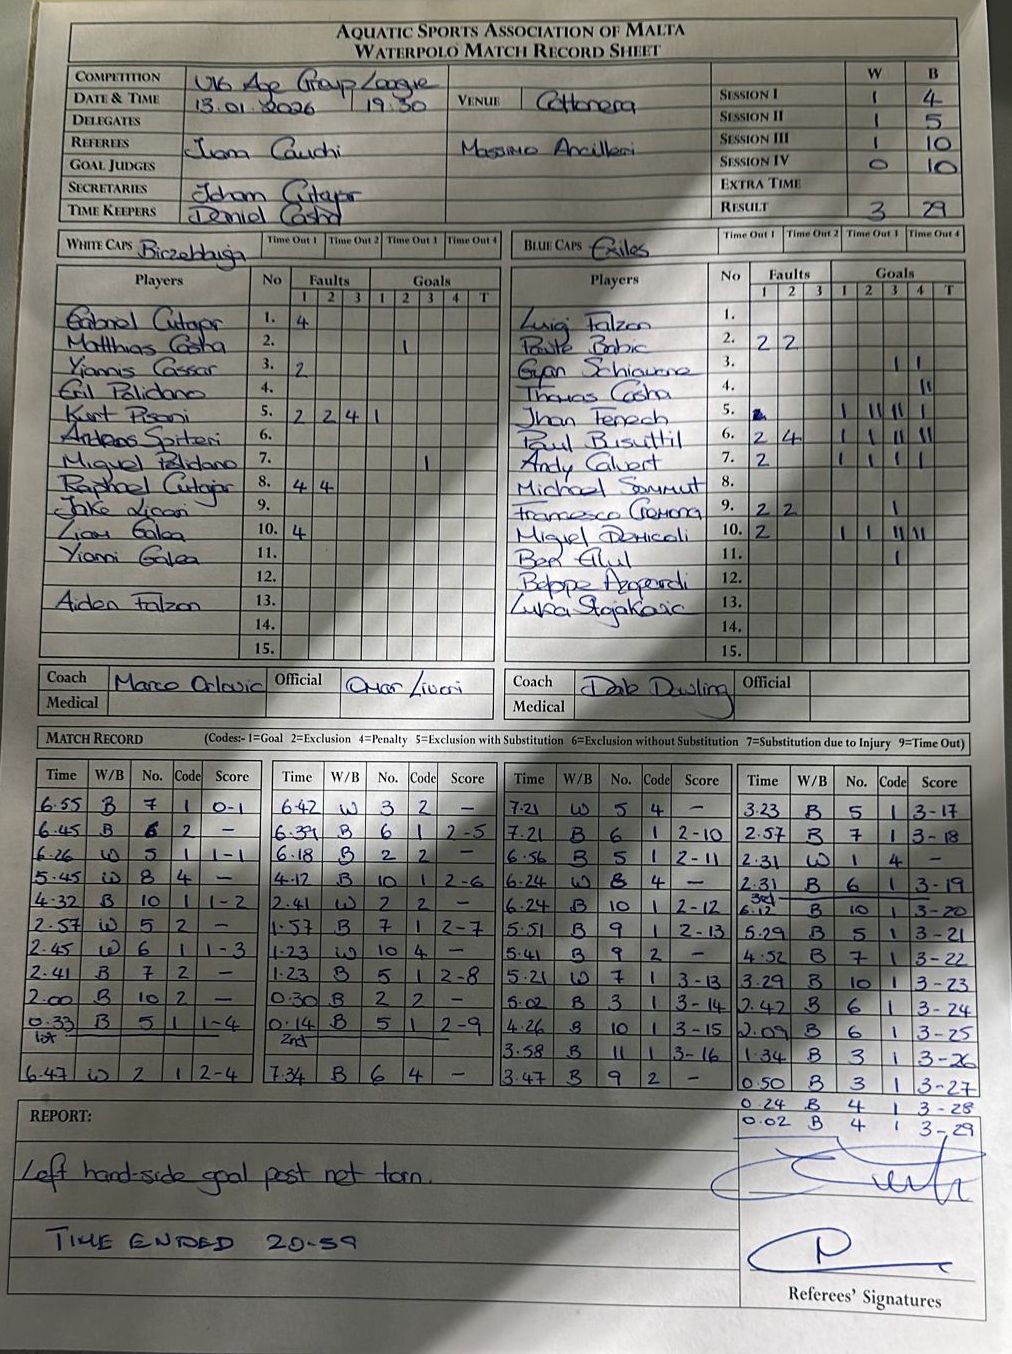 AQUATIC SPORTS ASSOCIATION OF MALTA
WATERPOLO MATCH RECORD SHEET
COMPETITION U16 Age Group League W B
DATE & TIME 13.01.2026 19:30 VENUE Cottonera SESSION I 1 4
DELEGATES SESSION II 1 5
REFEREES Massimo SESSION III 1 10
GOAL JUDGES SESSION IV 0 10
SECRETARIES EXTRA TIME
TIME KEEPERS RESULT 3 29
WHITE CAPS Birzebbuga Time Out 1 Time Out 2 Time Out 3 Time Out 4
Players No Faults Goals
1 2 3 1 2 3 4 T
Gabriel Cutajar 1. 4
Matthias Casha 2. 1
Yiannis Cassar 3. 2
Polidano 4.
Kurt Pisani 5. 2 2 4 1
Andreas Spiteri 6.
Miguel Polidano 7. 1
Raphael Cutajar 8. 4 4
Jake Licari 9.
Liam Galea 10. 4
Yianni Galea 11.
12.
Aiden Falzon 13.
14.
15.
BLUE CAPS Exiles Time Out 1 Time Out 2 Time Out 3 Time Out 4
Players No Faults Goals
1 2 3 1 2 3 4 T
Luigi Falzon 1.
Babic 2. 2 2
Schiavone 3. 1 1
Thomas Casha 4. 11
Jhan Fenech 5. 1 11 11 1
Paul Busuttil 6. 2 4 1 1 11 11
Andy Calvert 7. 2 1 1 1 1
Michael Sammut 8.
Francesco Cremona 9. 2 2 1
Miguel Demicoli 10. 2 1 1 11 11
Ben 11. 1
Azopardi 12.
Luka Stojakovic 13.
14.
15.
Coach Marco Orlovic Official Omar Licari
Medical
Coach Dowling Official
Medical
MATCH RECORD (Codes:- 1=Goal 2=Exclusion 4=Penalty 5=Exclusion with Substitution 6=Exclusion without Substitution 7=Substitution due to Injury 9=Time Out)
Time W/B No. Code Score
6.55 B 7 1 0-1
6.45 B 6 2 –
6.26 W 5 1 1-1
5.45 W 8 4 –
4.32 B 10 1 1-2
2.57 W 5 2 –
2.45 W 6 1 1-3
2.41 B 7 2 –
2.00 B 10 2 –
0.33 B 5 1 1-4
1st
6.47 W 2 1 2-4
Time W/B No. Code Score
6.42 W 3 2 –
6.39 B 6 1 2-5
6.18 B 2 2 –
4.12 B 10 1 2-6
2.41 W 2 2 –
1.57 B 7 1 2-7
1.23 W 10 4 –
1.23 B 5 1 2-8
0.30 B 2 2 –
0.14 B 5 1 2-9
2nd
7.34 B 6 4 –
Time W/B No. Code Score
7.21 W 5 4 –
7.21 B 6 1 2-10
6.56 B 5 1 2-11
6.24 W 8 4 –
6.24 B 10 1 2-12
5.51 B 9 1 2-13
5.41 B 9 2 –
5.21 W 7 1 3-13
5.02 B 3 1 3-14
4.26 B 10 1 3-15
3.58 B 11 1 3-16
3.47 B 9 2 –
Time W/B No. Code Score
3.23 B 5 1 3-17
2.57 B 7 1 3-18
2.31 W 1 4 –
2.31 B 6 1 3-19
3rd
6.12 B 10 1 3-20
5.29 B 5 1 3-21
4.52 B 7 1 3-22
3.29 B 10 1 3-23
2.42 B 6 1 3-24
2.09 B 6 1 3-25
1.34 B 3 1 3-26
0.50 B 3 1 3-27
0.24 B 4 1 3-28
0.02 B 4 1 3-29
REPORT:
Left hand-side goal post net torn.
TIME ENDED 20-59
Referees' Signatures